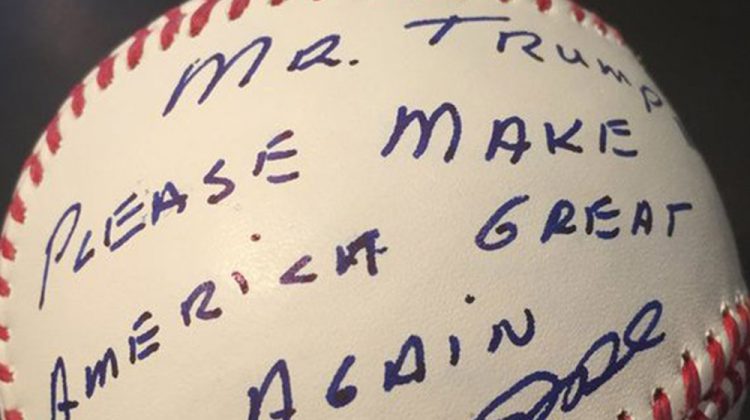 MR. TRUMP
PLEASE MAKE
AMERiCA GREAT
AGAiN